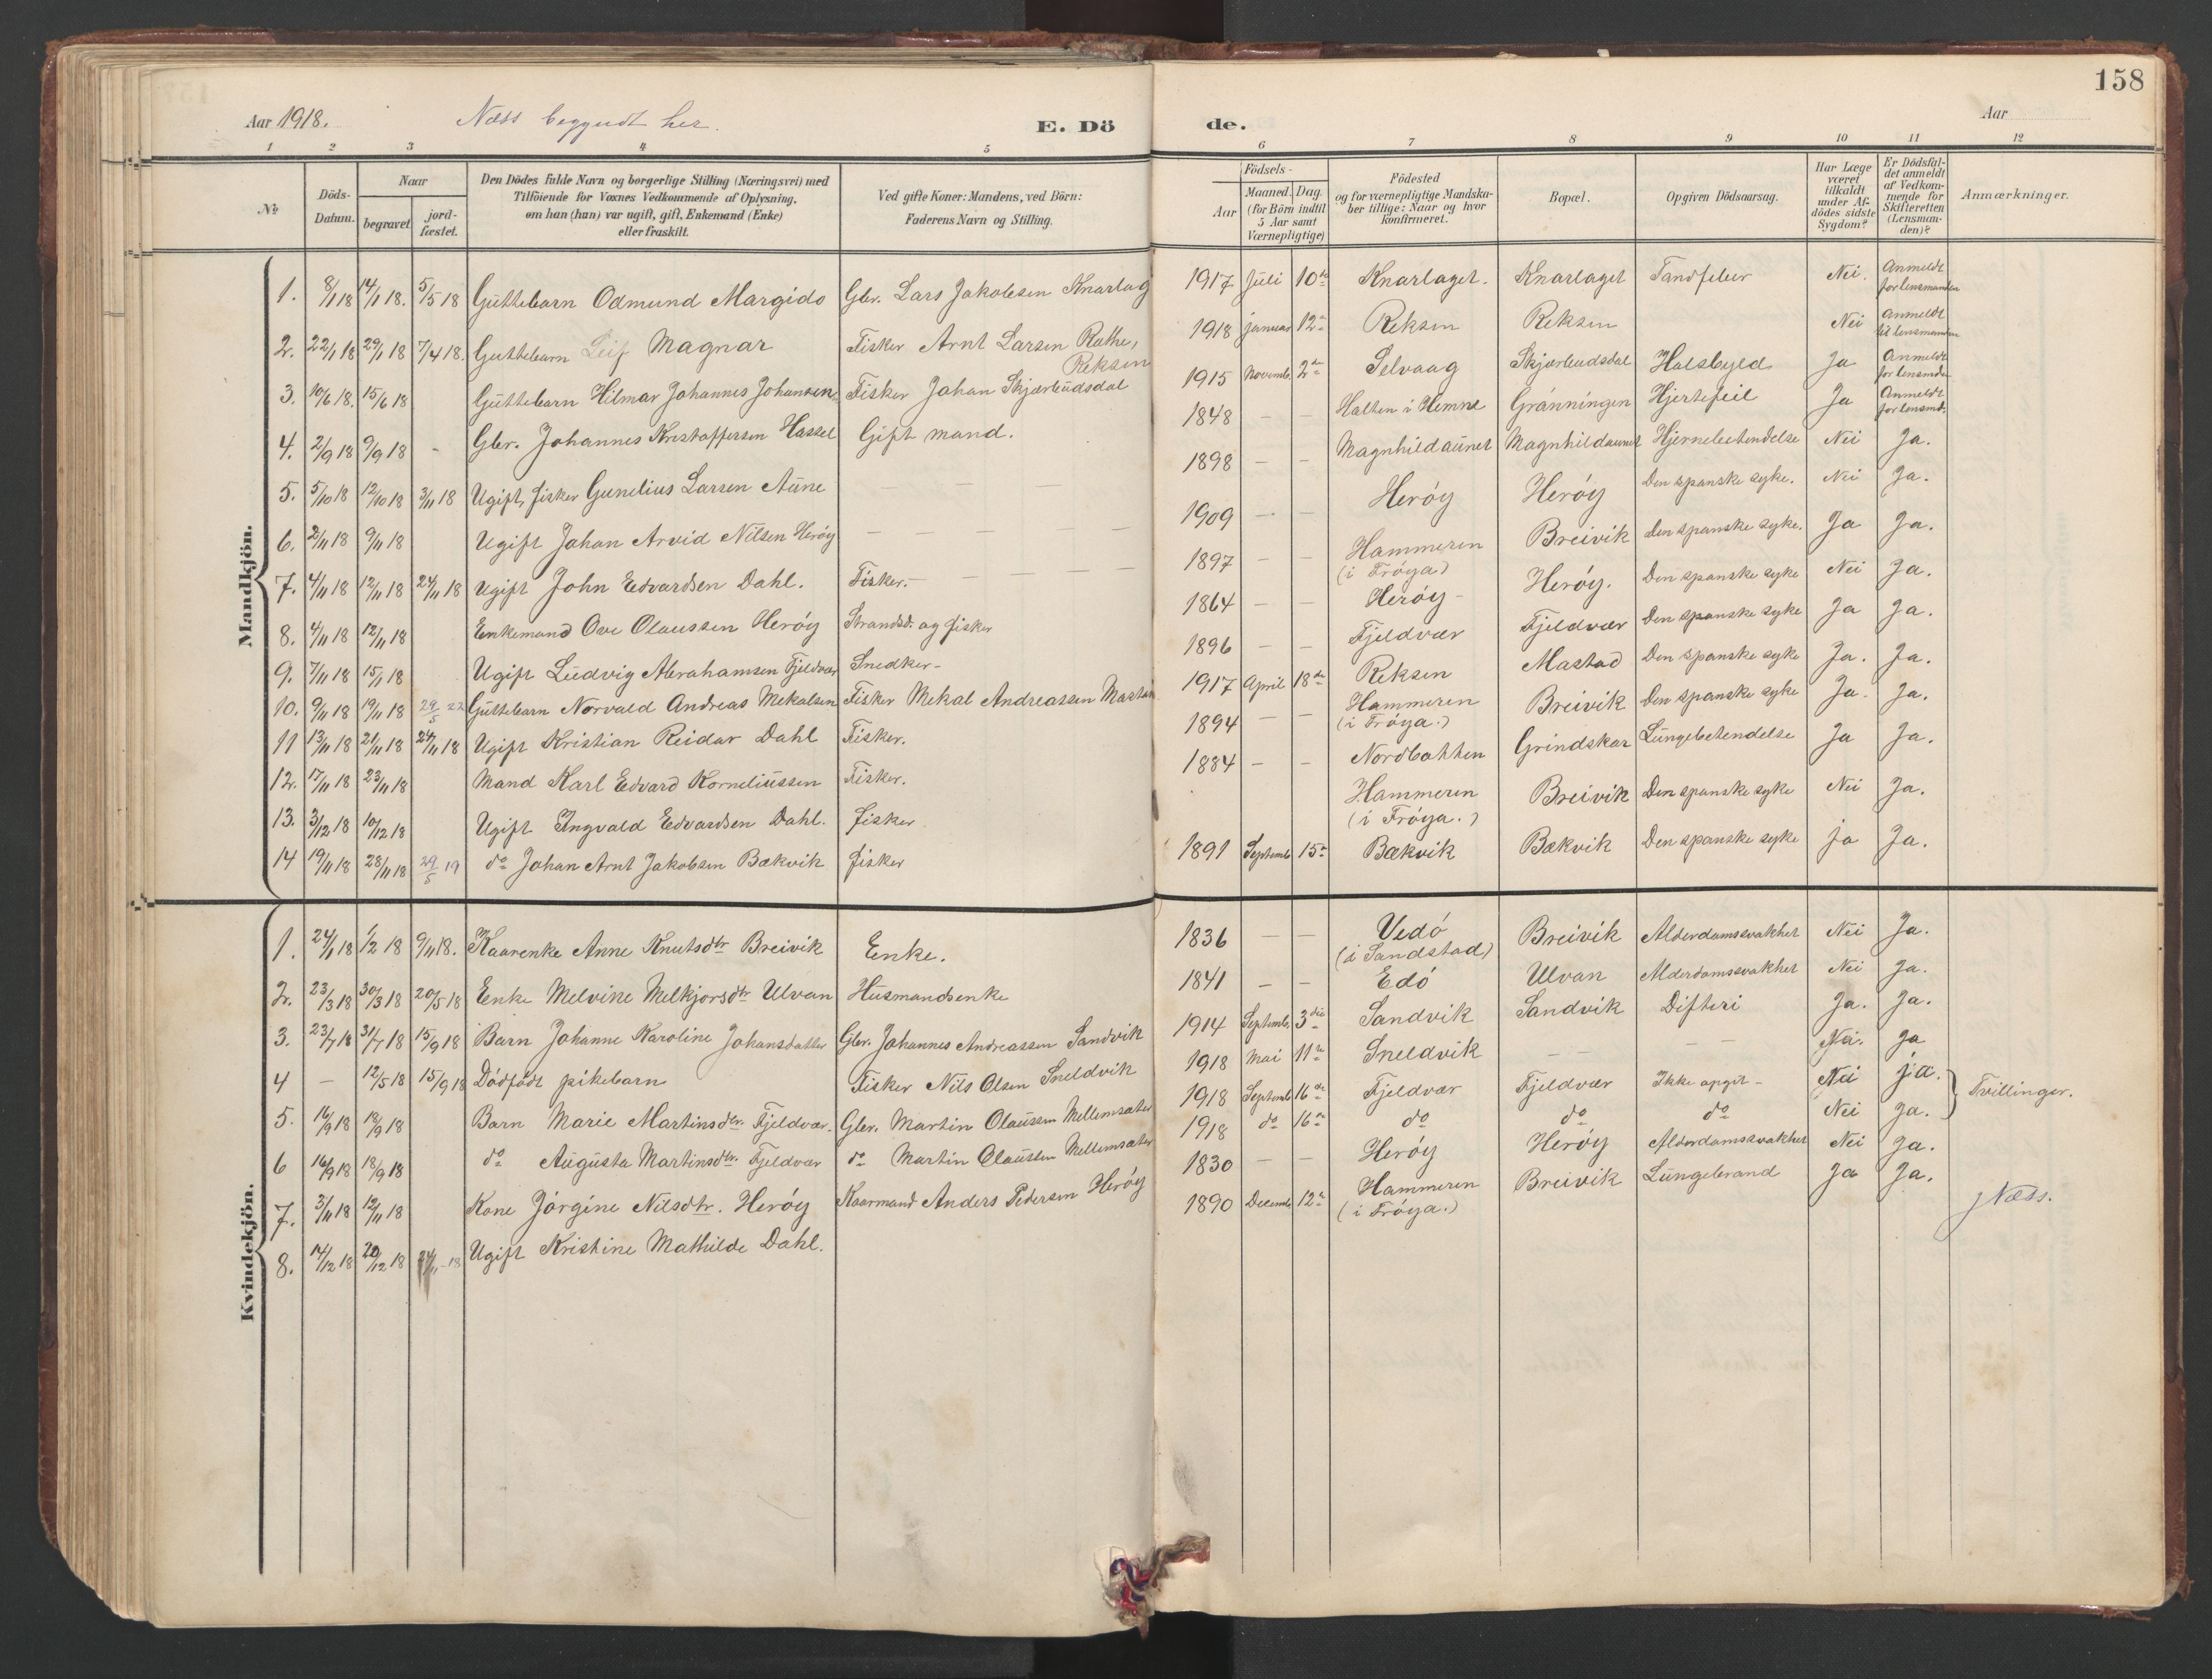 158
Aar 1918. Næss begyndt her. E. Dö de. Aar
1 2 3 4 5 6 7 8 9 10 11 12
№
Döds-
Datum.
Naar
begravet
jord-
fæstet.
Den Dödes fulde Navn og borgerlige Stilling (Næringsvei) med
Tilföiende for Voxnes Vedkommende af Oplysning,
om han (hun) var ugift, gift, Enkemand (Enke)
eller fraskilt.
Ved gifte Koner: Mandens, ved Börn:
Faderens Navn og Stilling.
Födsels-
Aar
Maaned. Dag.
(for Börn indtil
5 Aar samt
Værnepligtige)
Födested
og for værnepligtige Mandska-
ber tillige: Naar og hvor
konfirmeret.
Bopæl.
Opgiven Dödsaarsag.
Har Læge
været
tilkaldt
under Af-
dödes sidste
Sygdom?
Er Dödsfal-
det anmeldt
af Vedkom-
mende for
Skifteretten
(Lensman-
den)?
Anmærkninger.
Mandkjön.
1. 8/1 18 14/1 18. 5/5 18 Guttebarn Odmund Margido Gbr. Lars Jakobsen Knarlag 1917 Juli 10de Knarlaget. Knarlaget Tandfeber Nei. Anmeldt for lensmanden
2. 22/1 18 29/1 18 7/4 18. Guttebarn Leif Magnar Fisker Arnt Larsen Rathe, Reksen 1918 januar 12te Reksen Reksen Nei Anmeldt til lensmanden
3. 10/6 18. 15/6 18 Guttebarn Hilmar Johannes Johansen Fisker Johan Skjærbudsdal 1915 Novemb. 2de Selvaag Skjærbudsdal Halsbyld Ja Anmeldt for lensmden
4. 2/9 18 9/9 18 - Gbr. Johannes Kristoffersen Hassel Gift mand. 1848 — — Halten i Hemne Grånningen Hjertefeil Ja Anmeldt for lensmd.
5. 5/10 18 12/10 18 3/11 18 Ugift, fisker Gunelius Larsen Aune — — — 1898 — — Magnhildaunet Magnhildaunet Hjernebetendelse Nei Ja.
6. 2/11 18 9/11 18 Ugift Johan Arvid Nilsen Heröy — — — — 1909 — — Heröy Heröy Den spanske syke. Nei Ja.
7. 4/11 18 12/11 18 24/11 18 Ugift John Edvardsen Dahl. Fisker. — — — — 1897 — — Hammeren (i Fröya) Breivik den spanske syke. Ja Ja.
8. 4/11 18 12/11 18 Enkemand Ove Olaussen Heröy Strandsd. og fisker 1864 — — Heröy - Heröy. Den spanske syke Nei Ja.
9. 7/11 18 15/11 18 Ugift Ludvig Abrahamsen Fjeldvær Snedker- 1896 — — Fjeldvær Fjeldvær Den spanske syke Ja Ja.
10. 9/11 18 19/11 18 29/5 22 Guttebarn Norvald Andreas Mekalsen Fisker Mekal Andreassen Mastad 1917 April 18de Reksen Mastad Den spanske syke Ja. Ja.
11 13/11 18 21/11 18 24/11 18 Ugift Kristian Reidar Dahl Fisker. 1894 — — Hammeren (i Fröya.) Breivik Den spanske syke Ja. Ja.
12. 17/11 18 23/11 18 Mand Karl Edvard Korneliussen Fisker. 1884 — — Nordbotten Grindskar Lungebetendelse Ja Ja.
13. 3/12 18 10/12 18 Ugift Ingvald Edvardsen Dahl. fisker Hammeren (i Fröya.) Breivik Den spanske syke Nei Ja.
14 19/11 18 28/11 18 29/5 19 do Johan Arnt Jakobsen Bækvik fisker 1891 Septemb. 15de Bækvik Bækvik Den spanske syke ja Ja.
Kvindekjön.
1. 24/1 18 1/2 18 9/11 18. Kaarenke Anne Knutsdtr Breivik Enke. 1836 — — Vedö (i Sandstad) Breivik Alderdomssvakhet Nei Ja.
2. 23/3 18 30/3 18 20/5 18 Enke Melvine Melkjorsdtr Ulvan Husmandsenke 1841 — — Edö Ulvan Alderdomssvakhet Nei Ja.
3. 23/7 18 31/7 18 15/9 18 Barn Johanne Karoline Johansdatter Gbr. Johannes Andreassen Sandvik 1914 Septemb. 3die Sandvik Sandvik Difteri Ja. Ja.
4 — 12/5 18 15/9 18 Dödfödt pikebarn Fisker Nils Olsen Sneldvik 1918 Mai 11te Sneldvik — — — — Nei. Ja
5. 16/9 18 18/9 18 Barn Marie Martinsdtr. Fjeldvær. Gbr. Martin Olaussen Mellemsæter 1918 Septemb. 16de Fjeldvær Fjeldvær Ikke opgit - Nei ja. Tvillinger.
6 16/9 18 18/9 18 do Augusta Martinsdtr. Fjeldvær do Martin Olaussen Mellemsæter 1918 do 16de do do do Nei Ja.
7. 3/11 18 12/11 18 Kone Jörgine Nilsdtr. Heröy Kaarmand Anders Pedersen Heröy 1830 — — Heröy Heröy Alderdomssvakhet Nei Ja.
8. 14/12 18 20/12 18 24/11-18 Ugift Kristine Mathilde Dahl. 1890 Decemb. 12te Hammeren (i Fröya.) Breivik Lungebrand Ja Ja.
Næss.